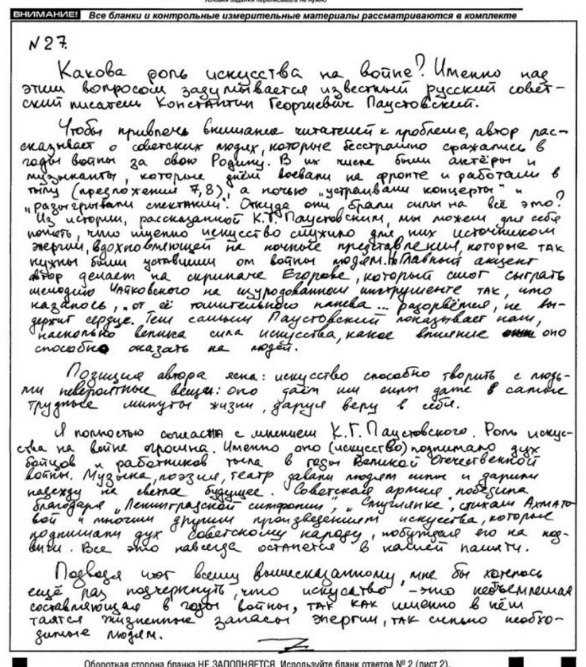 Условия задания переписывать не нужно
ВНИМАНИЕ! Все бланки и контрольные измерительные материалы рассматриваются в комплекте
N 27.
Какова роль искусства на войне? Именно над
этим вопросом задумывается известный русский совет-
ский писатель Константин Георгиевич Паустовский.
Чтобы привлечь внимание читателей к проблеме, автор рас-
сказывает о советских людях, которые бесстрашно сражались в
годы войны за свою Родину. В их числе были актёры и
музыканты, которые днём воевали на фронте и работали в
тылу (предложения 7,8), а ночью „устраивали концерты" и
„разыгрывали спектакли". Откуда они брали силы на всё это?
Из истории, рассказанной К.Г. Паустовским, мы можем для себя
понять, что именно искусство служило для них источником
энергии, вдохновляющей на ночные представления, которые так
нужны были уставшим от войны людям. Главный акцент
автор делает на скрипаче Егорове, который смог сыграть
мелодию Чайковского на изуродованном инструменте так, что
казалось, „от её томительного напева... разорвётся, не вы-
держит сердце. Тем самым Паустовский показывает нам,
насколько велика сила искусства, какое влияние оно
способно оказать на людей.
Позиция автора ясна: искусство способно творить с людь-
ми невероятные вещи: оно даёт им силы даже в самые
трудные минуты жизни, даруя веру в себя.
Я полностью согласна с мнением К.Г. Паустовского. Роль искус-
ства на войне огромна. Именно оно (искусство) поднимало дух
бойцов и работников тыла в годы Великой Отечественной
войны. Музыка, поэзия, театр давали людям силы и дарили
надежду на светлое будущее. Советская армия победила
благодаря „Ленинградской симфонии", „Смуглянке", стихам Ахмато-
вой и многим другим произведениям искусства, которые
поднимали дух советскому народу, побуждая его на под-
виги. Все это навсегда останется в нашей памяти.
Подводя итог всему вышесказанному, мне бы хотелось
ещё раз подчеркнуть, что искусство - это неотъемлемая
составляющая в годы войны, так как именно в нём
таятся жизненные запасы энергии, так сильно необхо-
димые людям.
Оборотная сторона бланка НЕ ЗАПОЛНЯЕТСЯ. Используйте бланк ответов № 2 (лист 2).